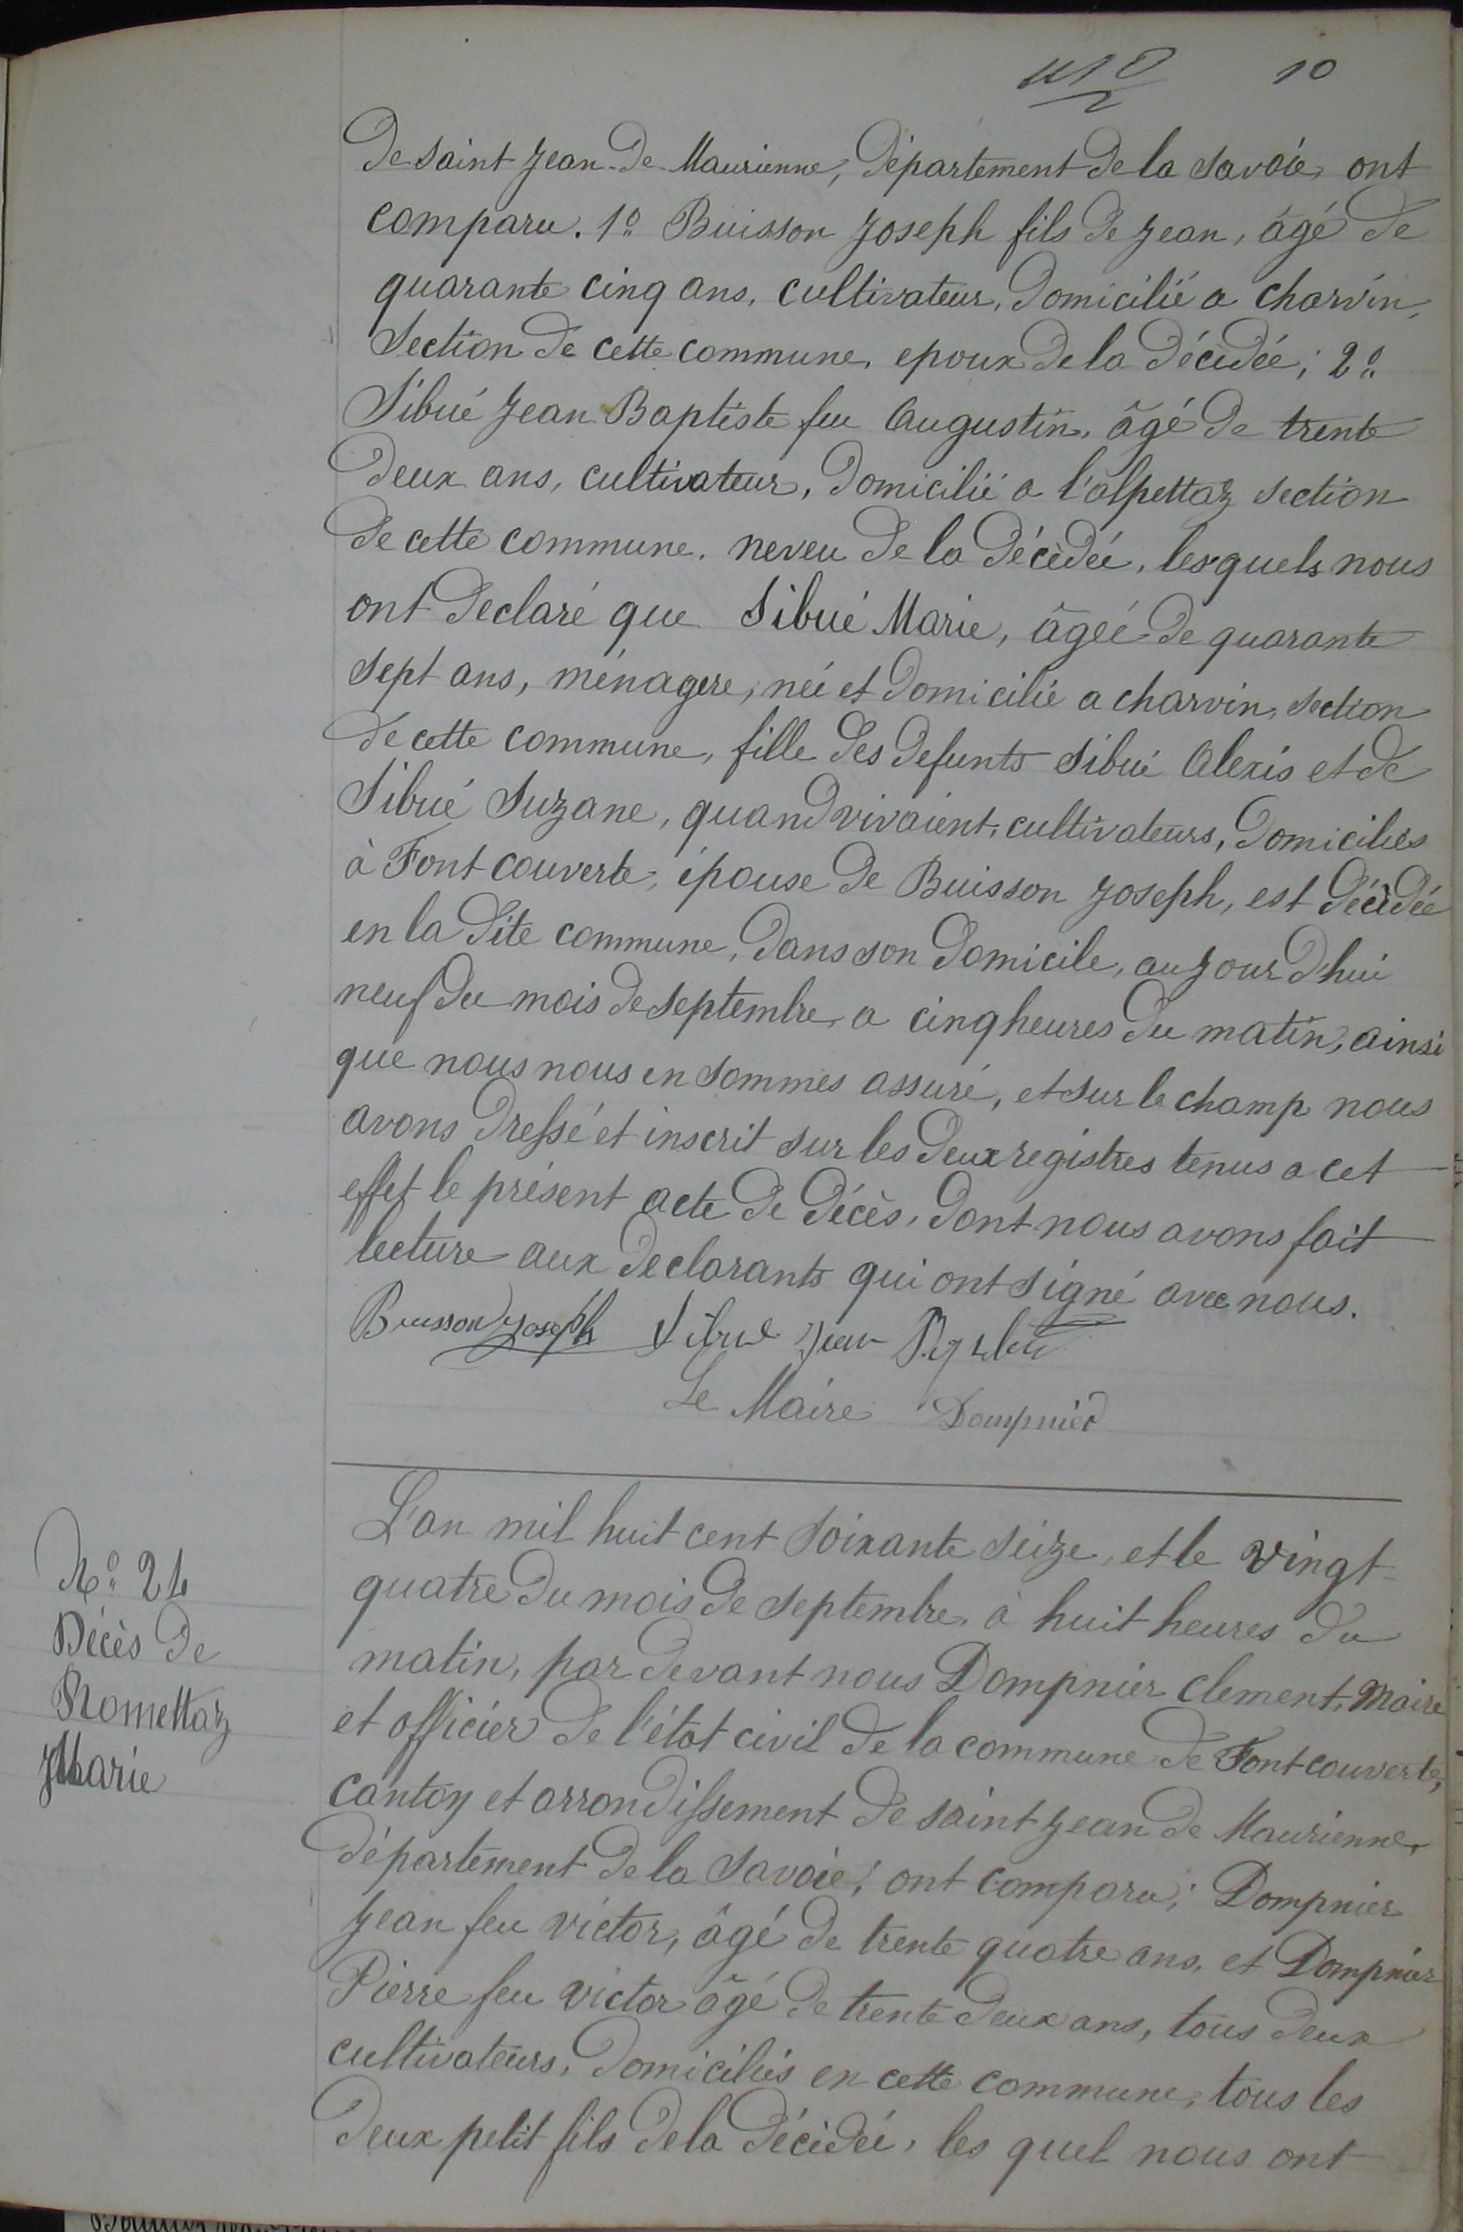 10
De saint Jean De Maurienne, Département De la Savoie, ont
comparu. 1º Buisson Joseph fils de Jean, âgé De
quarante cinq ans, cultivateur, Domicilié a charvin,
Section De cette commune, epoux De la Décédée; 2º
Sibué Jean Baptiste feu Augustin, âgé De trente
Deux ans, cultivateur, Domicilié a l'alpettaz section
De cette commune, neveu De la Décèdée, lesquels nous
ont Declaré que Sibué Marie, âgéé De quarante
sept ans, ménagere, néé et Domicilié a charvin, section
De cette commune, fille Des Defunts Sibué Alexis et De
Sibué Suzane, quand vivaient, cultivateurs, Domiciliés
à Font couverte, épouse De Buisson Joseph, est Décèdée
en la Dite commune, Dans son Domicile, au jour D'hui
neuf Du mois De Septembre, a cinq heures Du matin, ainsi
que nous nous en sommes assuré, et sur le champ nous
avons Dressé et inscrit sur les Deux registres tenus a cet
effet le présent acte De Décès, Dont nous avons fait
lecture aux Declarants qui ont signé avec nous.
Buisson Joseph Sibué Jean
Le Maire Dompnier
Nº 24
Décès De
Romettaz
Marie
L'an mil huit cent soixante seize, et le vingt-
quatre Du mois De Septembre, à huit heures Du
matin, par devant nous Dompnier Clement, Maire
et officier De l'état civil De la commune De Font couverte,
canton et arrondissement De saint Jean De Maurienne,
Département De la Savoie; ont comparu; Dompnier
Jean feu Victor, âgé De trente quatre ans, et Dompnier
Pierre feu Victor âgé De trente Deux ans, tous Deux
cultivateurs, Domiciliés en cette commune, tous les
Deux petit fils De la Décédéé, les quel nous ont